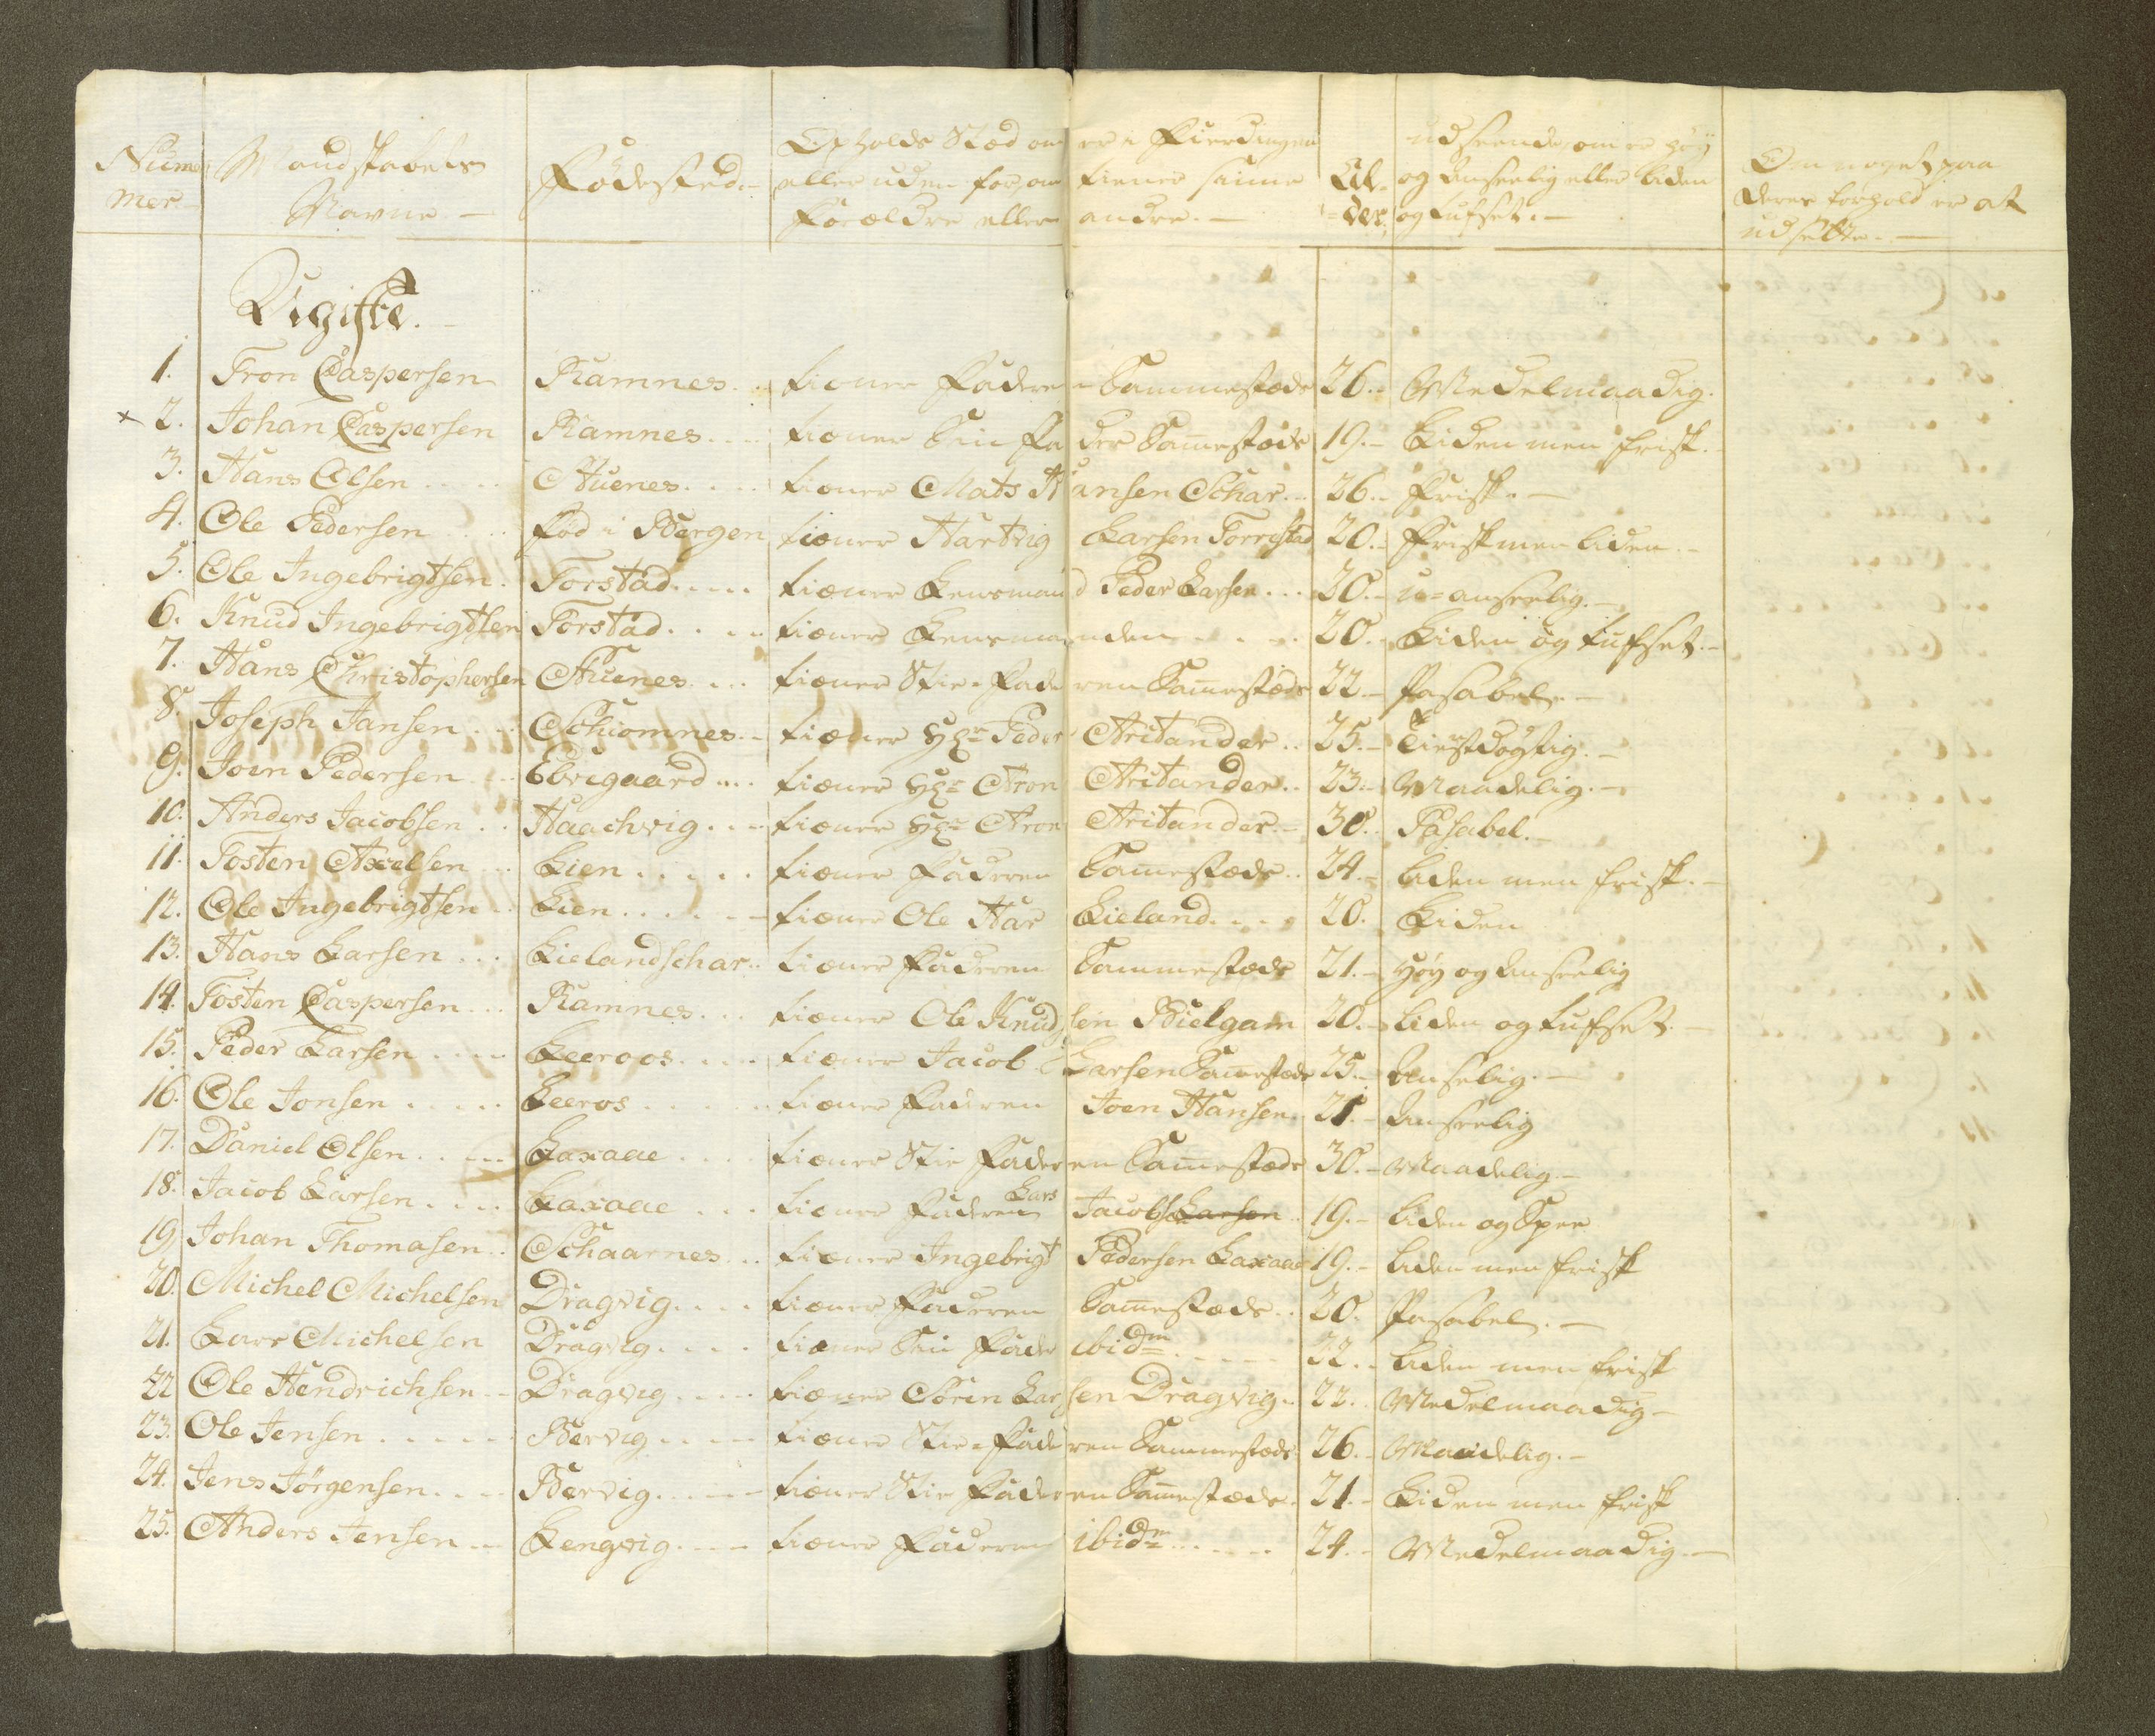 Num
mer
Mandskabets
Navne
Födested
Opholds Stæd om er i Fierdingen
eller uden for, om tiener sinne
Forældre eller andre.
Al-
der
udseende om er høy
og Anseelig eller liden
og tufset.
Om noget paa
deres forhold er at
udsette.
Ugifte.
1. Tron Caspersen Ramnes tiener Faderen Sammestæds 26. Medelmaadig.
× 2. Johan Caspersen Ramnes tiener Sin Fader Sam̄estæds 19. Liden men frisk.
3. Hans Olsen Stuenes tiener Mats Hansen Schar 26. Frisk.
4. Ole Pedersen fød i Bergen tiener Hartvig Larsen Torrestad 20. Frisk men liden
5. Ole Ingebrigtsen Torstad tiæner Lensmand Peder Larsen 20. u-anseelig.
6. Knud Ingebrigtsen Torstad tiæner Lensmanden 20. Liden og tufset.
7. Hans Christophersen Stuenes tiæner Stif-Faderen Sam̄estæds 22. Pasabel.
8. Joseph Jansen Schiomnes tiæner Hr Peder Aritander 25. Tienstdøgtig.
9. Joen Pedersen Ebregaard tiæner Hr Aron Aritander 23. Maadelig.
10. Anders Jacobsen Haachvig tiæner Hr Aron Aritander 30. Pasabel.
11. Tosten Axelsen Lien tiæner Faderen Sam̄estæds 24. liden men frisk.
12. Ole Ingebrigtsen Lien tiæner Ole Har Lieland 20. Liden
13. Hans Larsen Lielandschar tiæner Faderen Sammestæds 21. Høy og Anseelig
14. Tosten Caspersen Ramnes tiæner Ole Knudsen Bielgam 20. Liden og tufset.
15. Peder Larsen Leeroos tiæner Jacob Larsen Sam̄estæds 25. Anselig.
16. Ole Jonsen Leeros tiæner Faderen Joen Hansen 21. Anseelig
17. Daniel Olsen Laxaae tiæner Stif Faderen Sam̄estæds 30. Maadelig.
18. Jacob Larsen Laxaae tiæner Faderen Lars Jacobs Larsen 19. liden og Spee
19. Johan Thomasen Schaarnes tiæner Ingebrigt Pedersen Laxaae 19. liden men frisk
20. Michel Michelsen Dragvig tiæner Faderen Sam̄estæds 20. Pasabel.
21. Lars Michelsen Dragvig tiæner Sin Fader ibidm 32. liden men frisk
22 Ole Hendrichsen Dragvig tiæner Sören Larsen Dragvig 22. Medelmaadig
23. Ole Jensen Bervig tiæner Stif-Faderen Sammestæds 26. Maadelig.
24. Jens Jörgensen Bervig tiæner Stif Faderen Sam̄estæds 21. Liden men frisk
25. Anders Jensen Lengvig tiæner Faderen ibidm 24. Medelmaadig